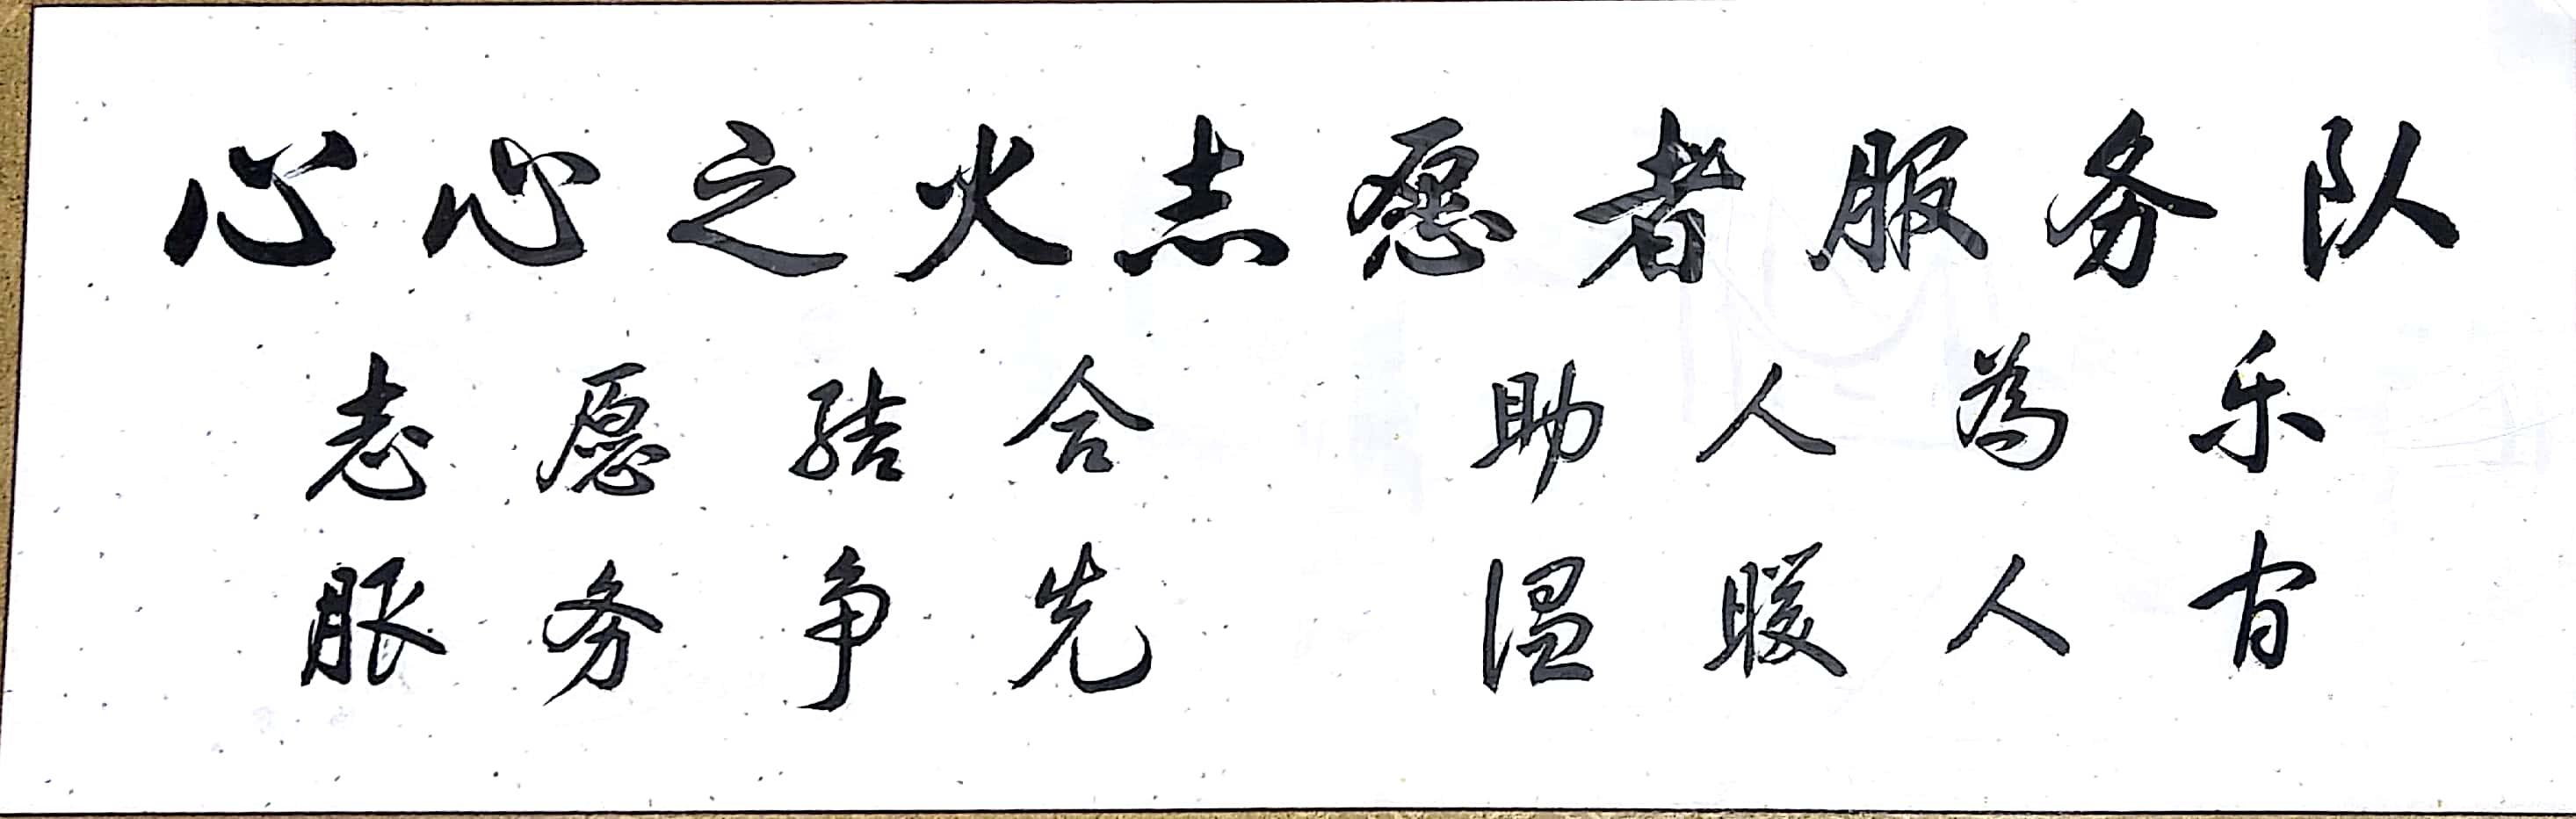 心心之火志愿者服务队
志愿结合 助人为乐
服务争先 温暖人间